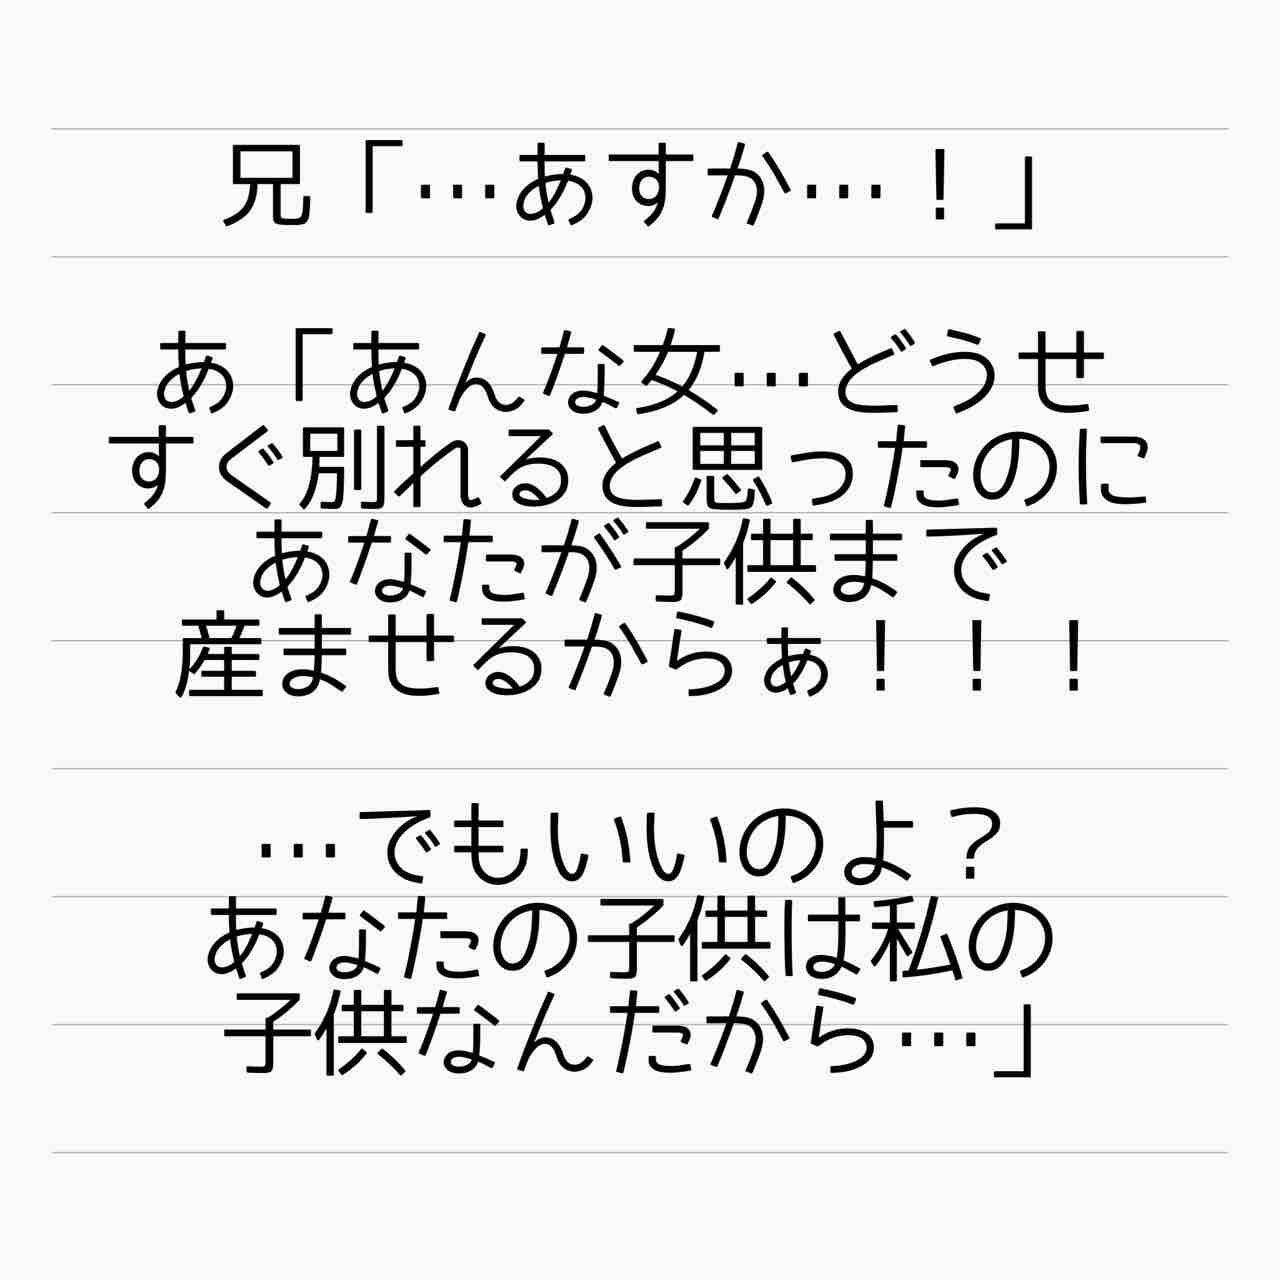 兄「…あすか…！」
あ「あんな女…どうせ
すぐ別れると思ったのに
あなたが子供まで
産ませるからぁ！！！
…でもいいのよ？
あなたの子供は私の
子供なんだから…」